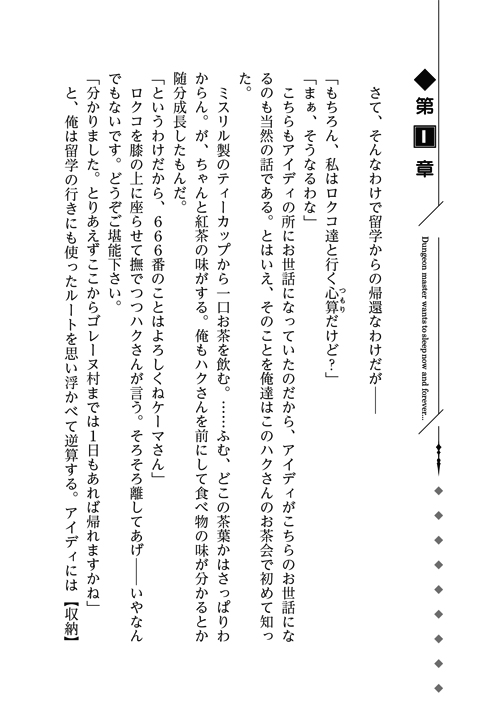 第1章
Dungeon master wants to sleep now and forever...
さて、そんなわけで留学からの帰還なわけだが――
「もちろん、私はロクコ達と行く心算だけど？」
つもり
「まぁ、そうなるわな」
こちらもアイディの所にお世話になっていたのだから、アイディがこちらのお世話にな
るのも当然の話である。とはいえ、そのことを俺達はこのハクさんのお茶会で初めて知っ
た。
ミスリル製のティーカップから一口お茶を飲む。……ふむ、どこの茶葉かはさっぱりわ
からん。が、ちゃんと紅茶の味がする。俺もハクさんを前にして食べ物の味が分かるとか
随分成長したもんだ。
「というわけだから、６６６番のことはよろしくねケーマさん」
ロクコを膝の上に座らせて撫でつつハクさんが言う。そろそろ離してあげ――いやなん
でもないです。どうぞご堪能下さい。
「分かりました。とりあえずここからゴレーヌ村までは１日もあれば帰れますかね」
と、俺は留学の行きにも使ったルートを思い浮かべて逆算する。アイディには【収納】